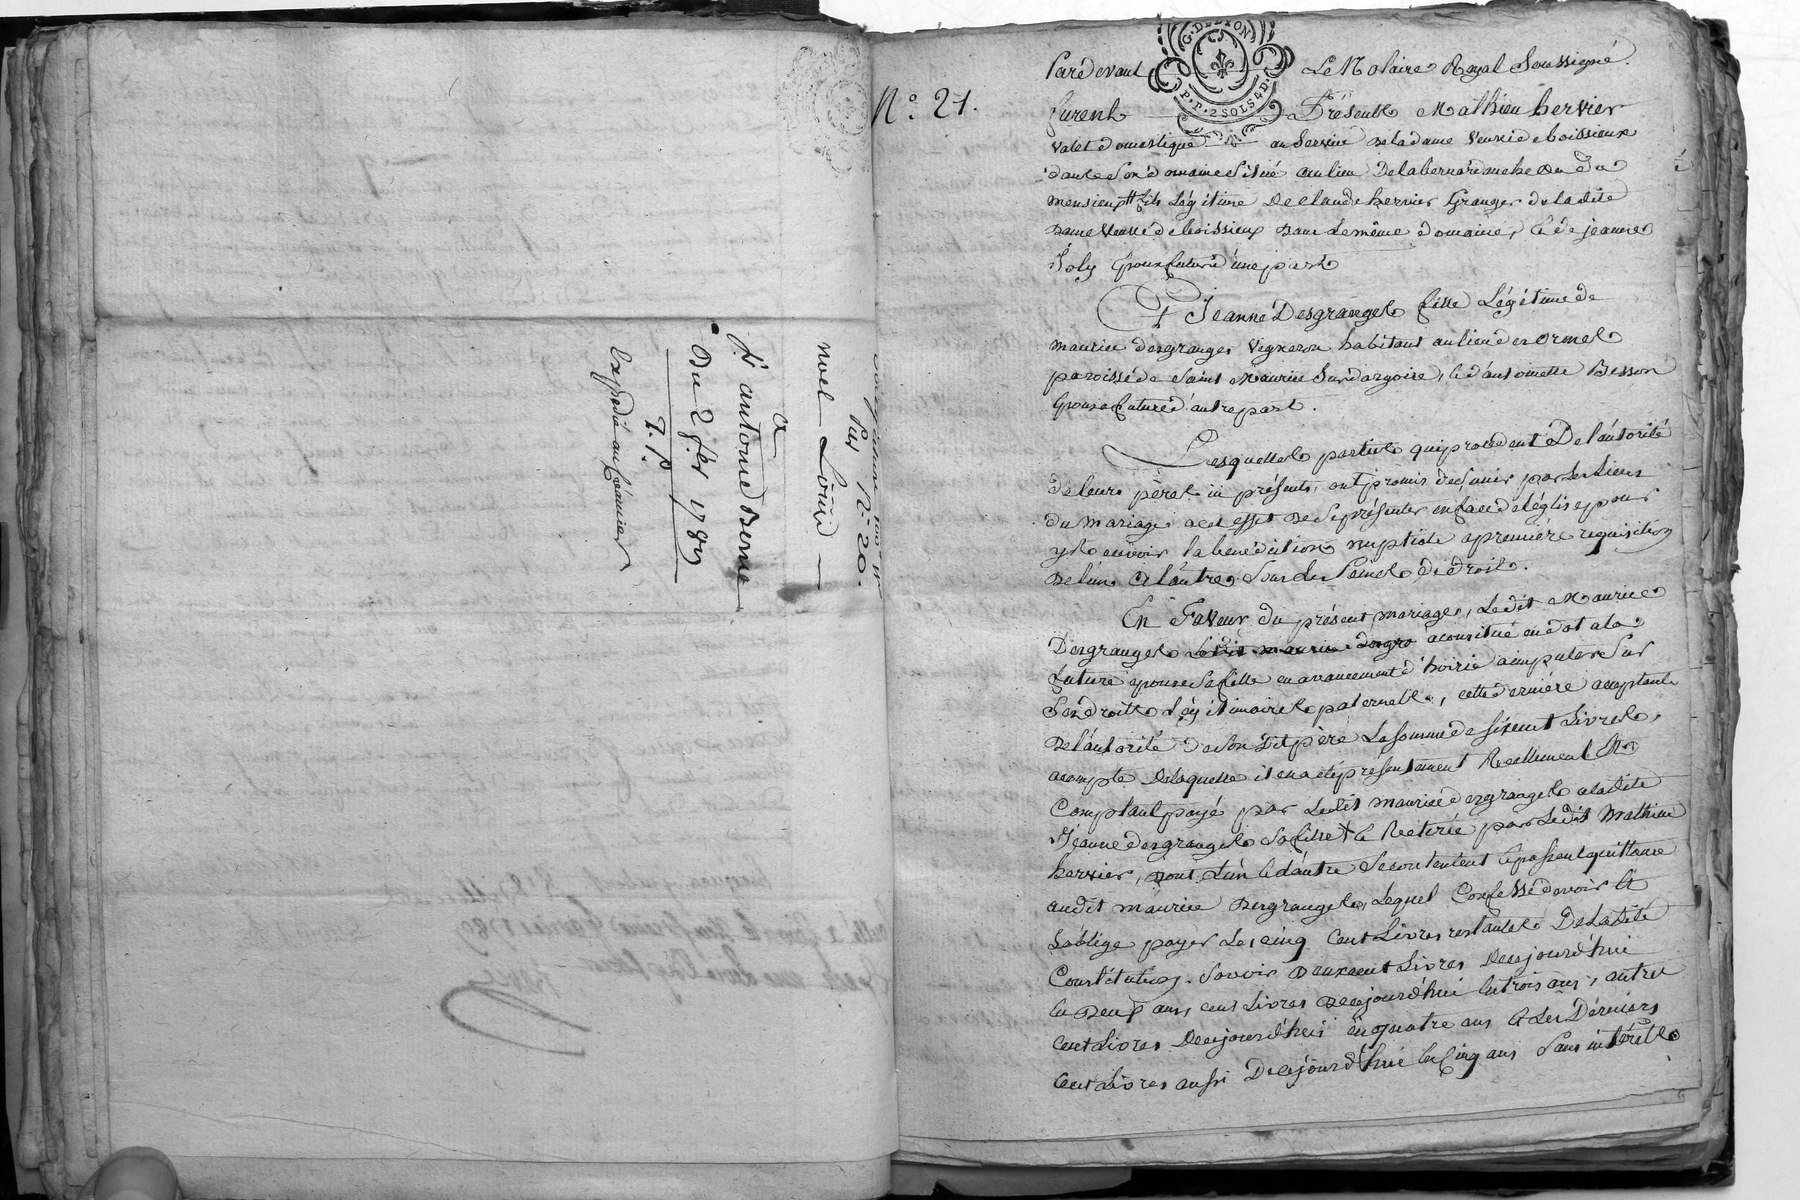 noel Louis
a
S.r antoine Berne
Du 2 fer 1789
expedié au créancier
N.° 20.
N.° 21.
G. DE LYON
P. P. 2 SOLS 4 D.
Pardevant Le Notaire Royal Soussigné.
furent Présents Mathieu hervier
valet domestique au Service de la dame Veuve de boissieux
dans Son domaine Situé au lieu De la bernardanche
fils Légitime De claude hervier Granger de la dite
Dame Veuve de boissieux Dans Le même domaine, et de jeanne
Joly Epoux futur d'une part
Et Jeanne Desgranges fille Légitime de
maurice desgranges vigneron habitant au lieu des ormes
paroisse de Saint Maurice Sur dargoire, et d'antoinette Besson
Epouse future d'autre part.
Lesquelles parties qui procedent De l'autorité
de leurs pères ici présents, ont promis de S'unir par Les Liens
du mariage a cet effet De Se présenter en face d'église pour
y recevoir la bénédiction nuptiale a première requisition
De l'un a L'autre Sous les Peines de droit.
En Faveur du présent mariage, Ledit Maurice
Desgranges Ledit maurice desgra a constitué en dot a la
future epouse Sa fille en avancement d'hoirie a imputer Sur
Ses droits Légitimaires paternels, cette dernière acceptante
De l'autorité de Son dit père La Somme de Six cent Livres,
acompte De laquelle il en a été présentement Réellement Et
Comptant payé par Ledit maurice desgranges a ladite
Jeanne desgranges Sa fille et Retirée par Ledit Mathieu
hervier, dont L'un et d'autre Se contentent et passent quittance
audit maurice Desgranges, Lequel Confesse devoir Et
S'oblige payer Les cinq Cent Livres restantes De Ladite
Constitution. Savoir Deux cent Livres Decejourd'hui
en Deux ans, cent Livres Decejourd'hui en trois ans, autres
Cent Livres Decejourd'hui en quatre ans et Les Derniers
Cent Livres aussi Decejourd'hui en Cinq ans Sans intérêts